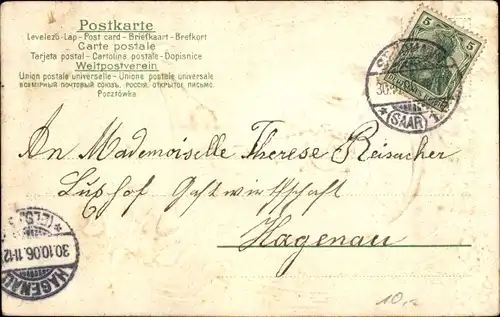 Postkarte
Levelező-Lap - Post card - Briefkaart - Brefkort
Carte postale
Tarjeta postal - Cartolina postale - Dopisnice
Weltpostverein
Union postale universelle - Unione postale universale
ВСЕМІРНЫЙ ПОЧТОВЫЙ СОЮЗЪ. РОССІЯ. ОТКРЫТОЕ ПИСЬМО.
Pocztówka
5 5
(SAAR) 1
An Mademoiselle Therese Reisacher
Luxhof Gastwirthschaft
Hagenau
HAGENAU
30.10.06.11-12
(ELS.)
10.-